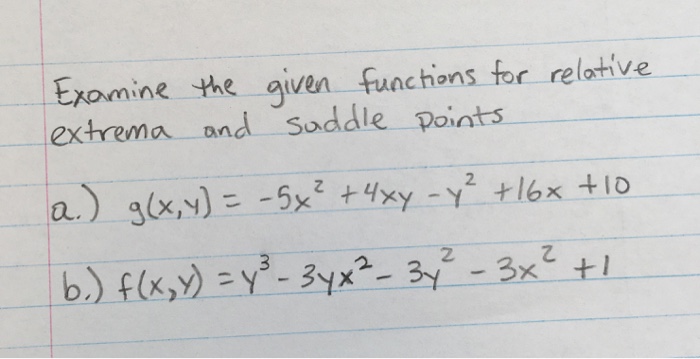 Examine the given functions for relative
extrema and saddle points
a.) g(x,y) = -5x² + 4xy - y² + 16x + 10
b.) f(x,y) = y³ - 3yx² - 3y² - 3x² + 1